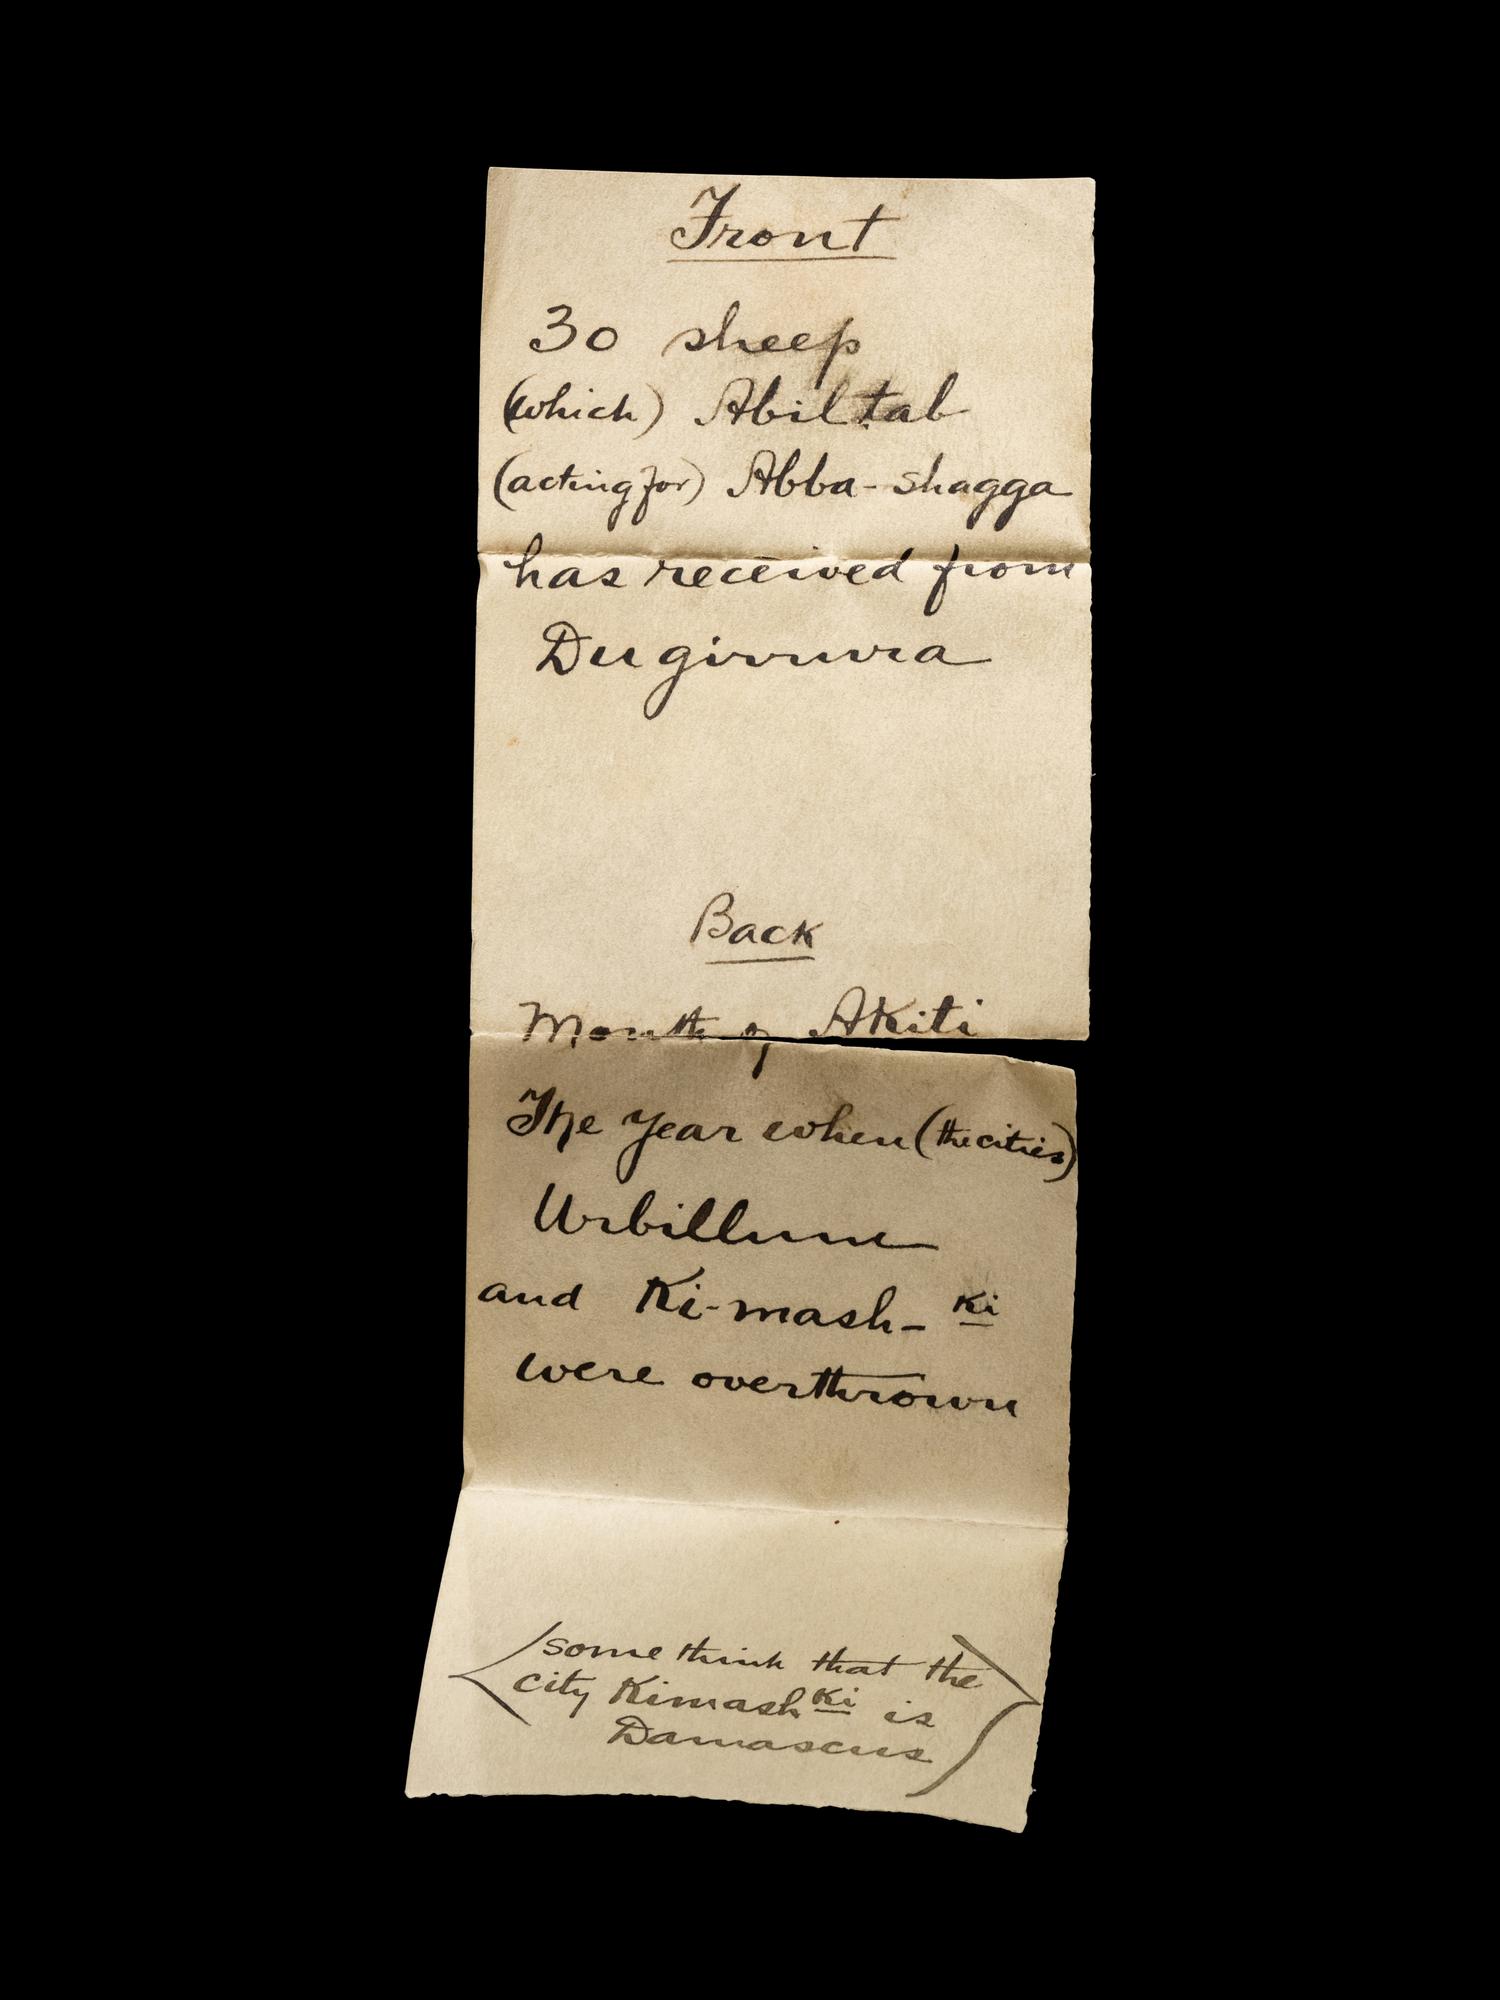 Front
30 sheep
(which) Abil tab
(acting for) Abba-shagga
has received from
Back
Month of Akiti
The year when (the cities)
Urbillum
and Ki-mash-ki
were overthrown
some think that the
city Kimash ki is
Damascus